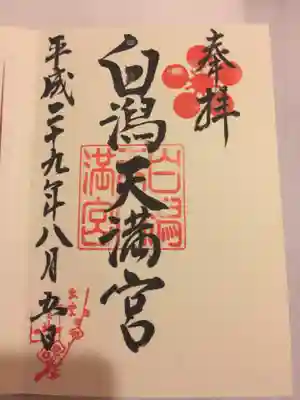 奉拝
白潟天満宮
白潟天満宮
平成二十九年八月五日